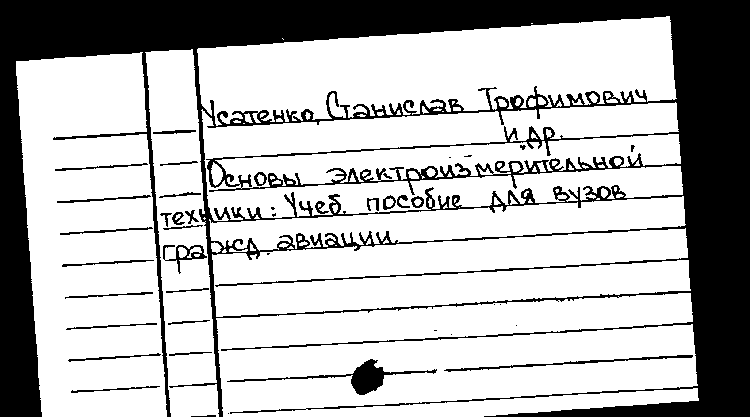 Усатенко, Станислав Трофимович
и др.
Основы электроизмерительной
техники: Учеб. пособие для вузов
гражд. авиации.